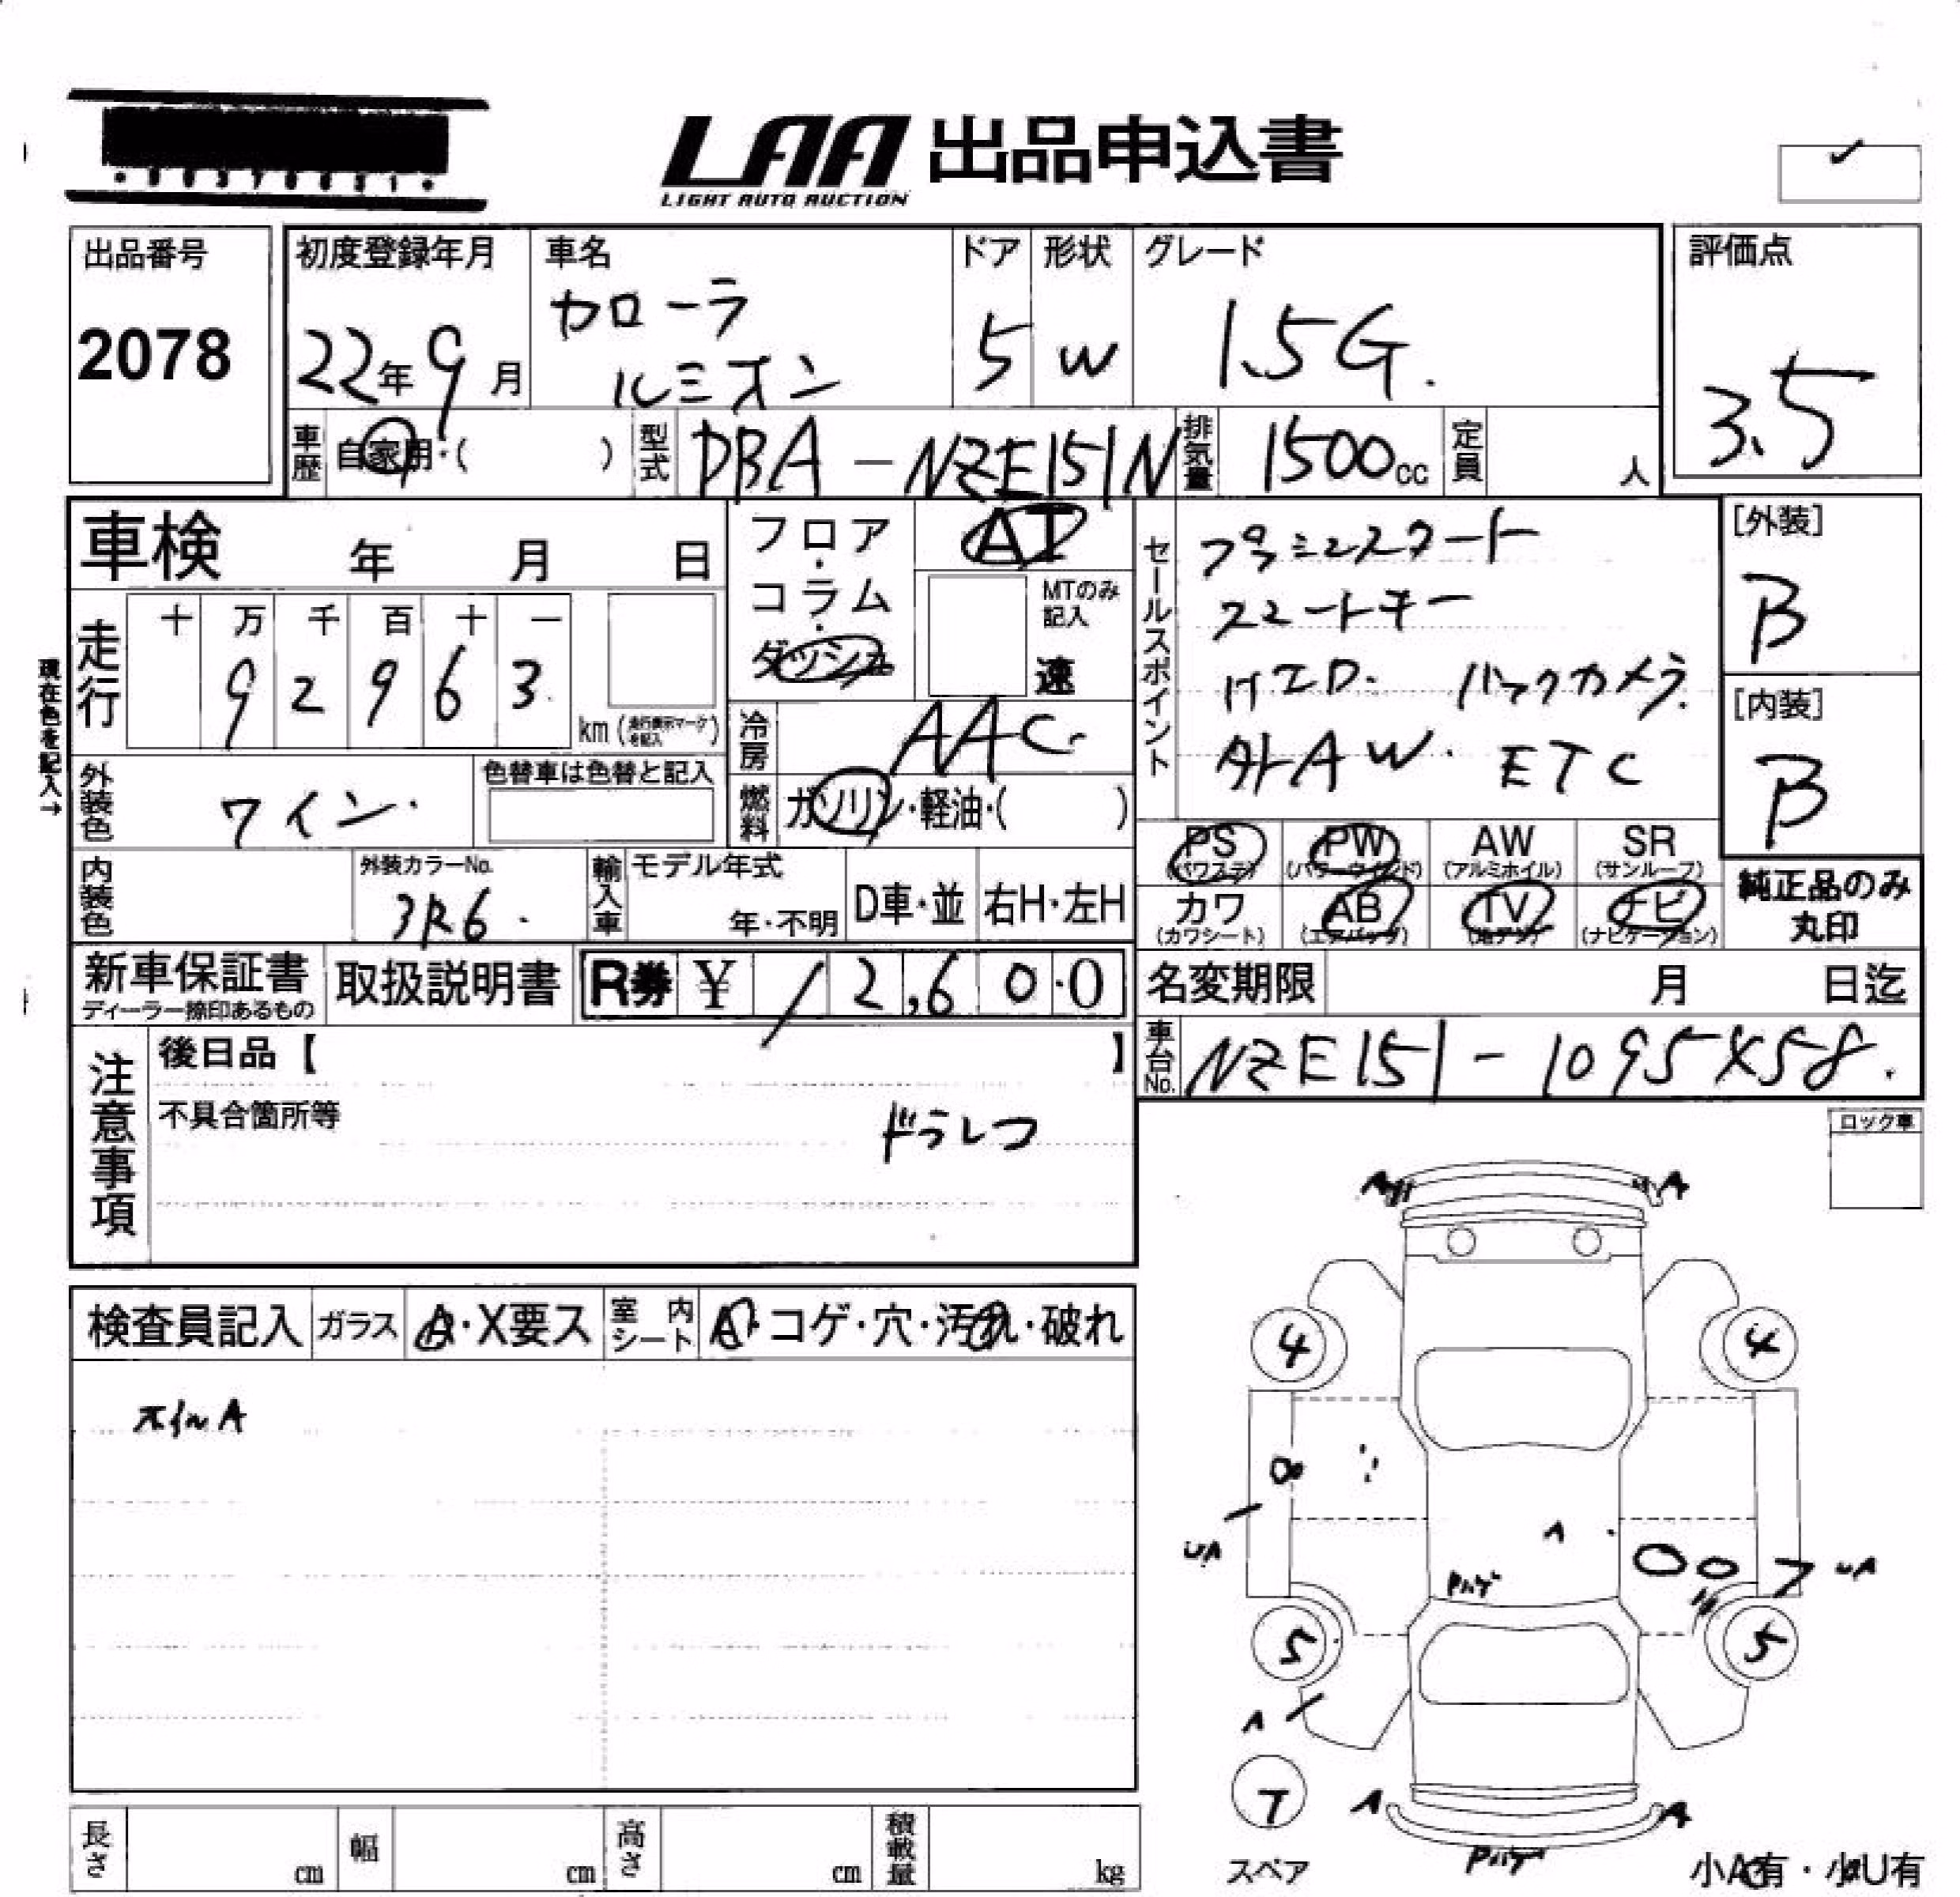 LAA 出品申込書
LIGHT AUTO AUCTION
出品番号
2078
初度登録年月
22年9月
車名
カローラ
ルミオン
ドア
5
形状
W
グレード
1.5G.
評価点
3.5
車歴
自家用・( )
型式
DBA-NZE151N
排気量
1500cc
定員
人
車検 年 月 日
フロア・コラム・ダッシュ
AT
MTのみ記入
速
走行
十 万 千 百 十 一
9 2 9 6 3
km
現在色を記入→
冷房
AAC
燃料
ガソリン・軽油・( )
外装色
ワイン.
色替車は色替と記入
内装色
外装カラーNo.
3R6.
輸入車
モデル年式
年・不明
D車・並
右H・左H
セールスポイント
プッシュスタート
スマートキー
HID. バックカメラ.
外AW. ETC
[外装]
B
[内装]
B
PS (パワステ)
PW (パワーウインド)
AW (アルミホイル)
SR (サンルーフ)
カワ (カワシート)
AB (エアバッグ)
TV (地デジ)
ナビ (ナビゲーション)
純正品のみ
丸印
新車保証書
ディーラー捺印あるもの
取扱説明書
R券 ¥ / 2,6 0・0
名変期限 月 日迄
車台No.
NZE151-1095X58.
注意事項
後日品【 】
不具合箇所等
ドラレコ
ロック車
検査員記入
ガラス
A・X要ス
室内シート
A・コゲ・穴・汚れ・破れ
ホイルA
A
A
4
4
UA
A
UA
Pハゲ
5
5
A
T
スペア
A
A
Pハゲ
小A有・小U有
長さ cm
幅 cm
高さ cm
積載量 kg